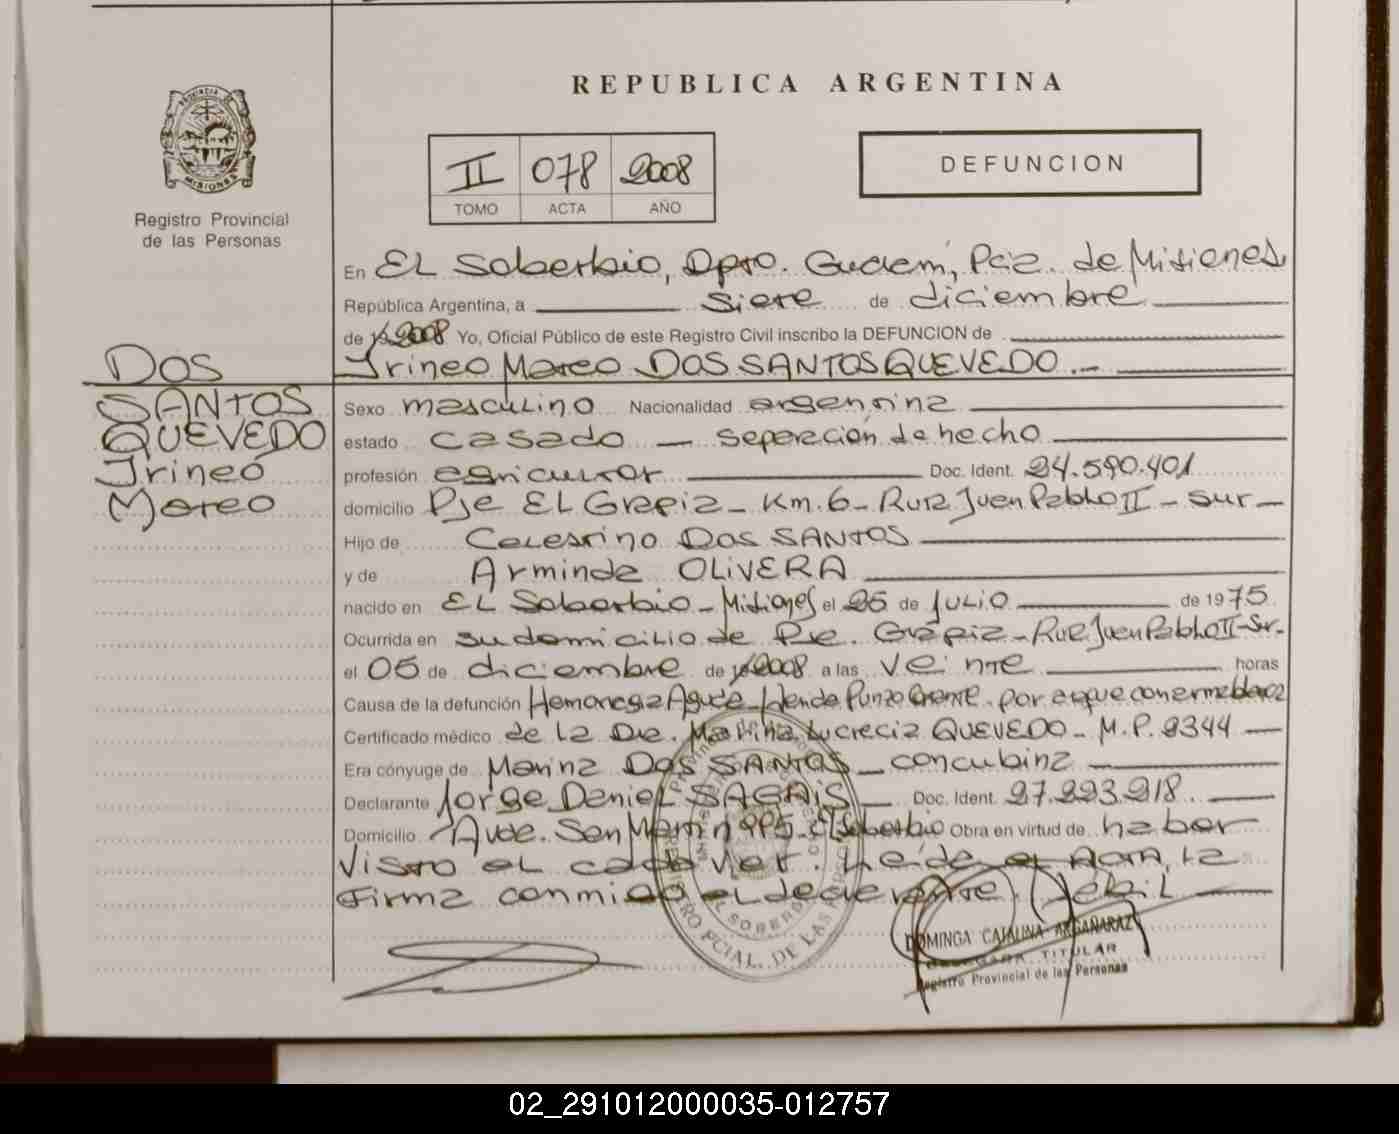 REPUBLICA ARGENTINA
PROVINCIA DE
MISIONES
Registro Provincial
de las Personas
II 078 2008
TOMO ACTA AÑO
DEFUNCION
En EL Soberbio, Dpto. Guaraní, Pcia. de Misiones
República Argentina, a siete de diciembre
de 2008 Yo, Oficial Público de este Registro Civil inscribo la DEFUNCION de
Irineo Mateo DOS SANTOS QUEVEDO.-
DOS
SANTOS
QUEVEDO
Irineo
Mateo
Sexo masculino Nacionalidad argentina
estado casado - separación de hecho
profesión agricultor Doc. Ident. 24.590.401
domicilio Pje EL Grapia - Km. 6 - Ruta Juan Pablo II - sur -
Hijo de Celestino DOS SANTOS
y de Arminda OLIVERA
nacido en EL Soberbio - Misiones el 25 de JULIO de 1975
Ocurrida en su domicilio de Pje. Grapia - Ruta Juan Pablo II - Sur.-
el 05 de diciembre de 2008 a las veinte horas
Causa de la defunción Hemorragia Aguda - Herida Punzo Cortante. por ataque con arma blanca
Certificado médico de la Dra. Marina Lucrecia QUEVEDO - M.P. 2344
Era cónyuge de Marina DOS SANTOS - concubina
Declarante Jorge Daniel SAGAIS - Doc. Ident. 27.223.218.
Domicilio Avda. San Martín 995 - El Soberbio Obra en virtud de haber
visto el cadáver. Leída el Acta, la
firma conmigo el declarante.
DOMINGA CATALINA ARGAÑARAZ
DELEGADA TITULAR
Registro Provincial de las Personas
02_291012000035-012757